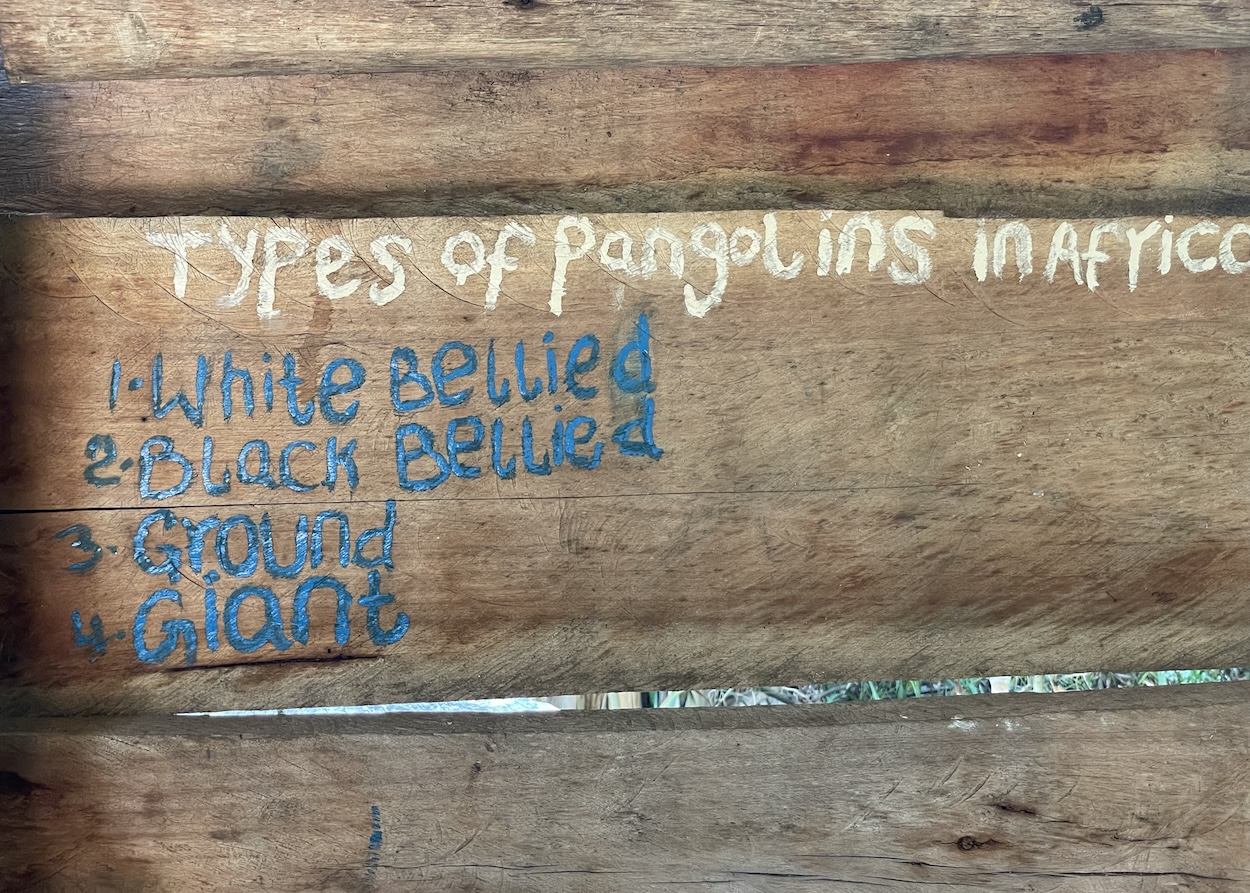 Types of Pangolins in Africa
1. White Bellied
2. Black Bellied
3. Ground
4. Giant